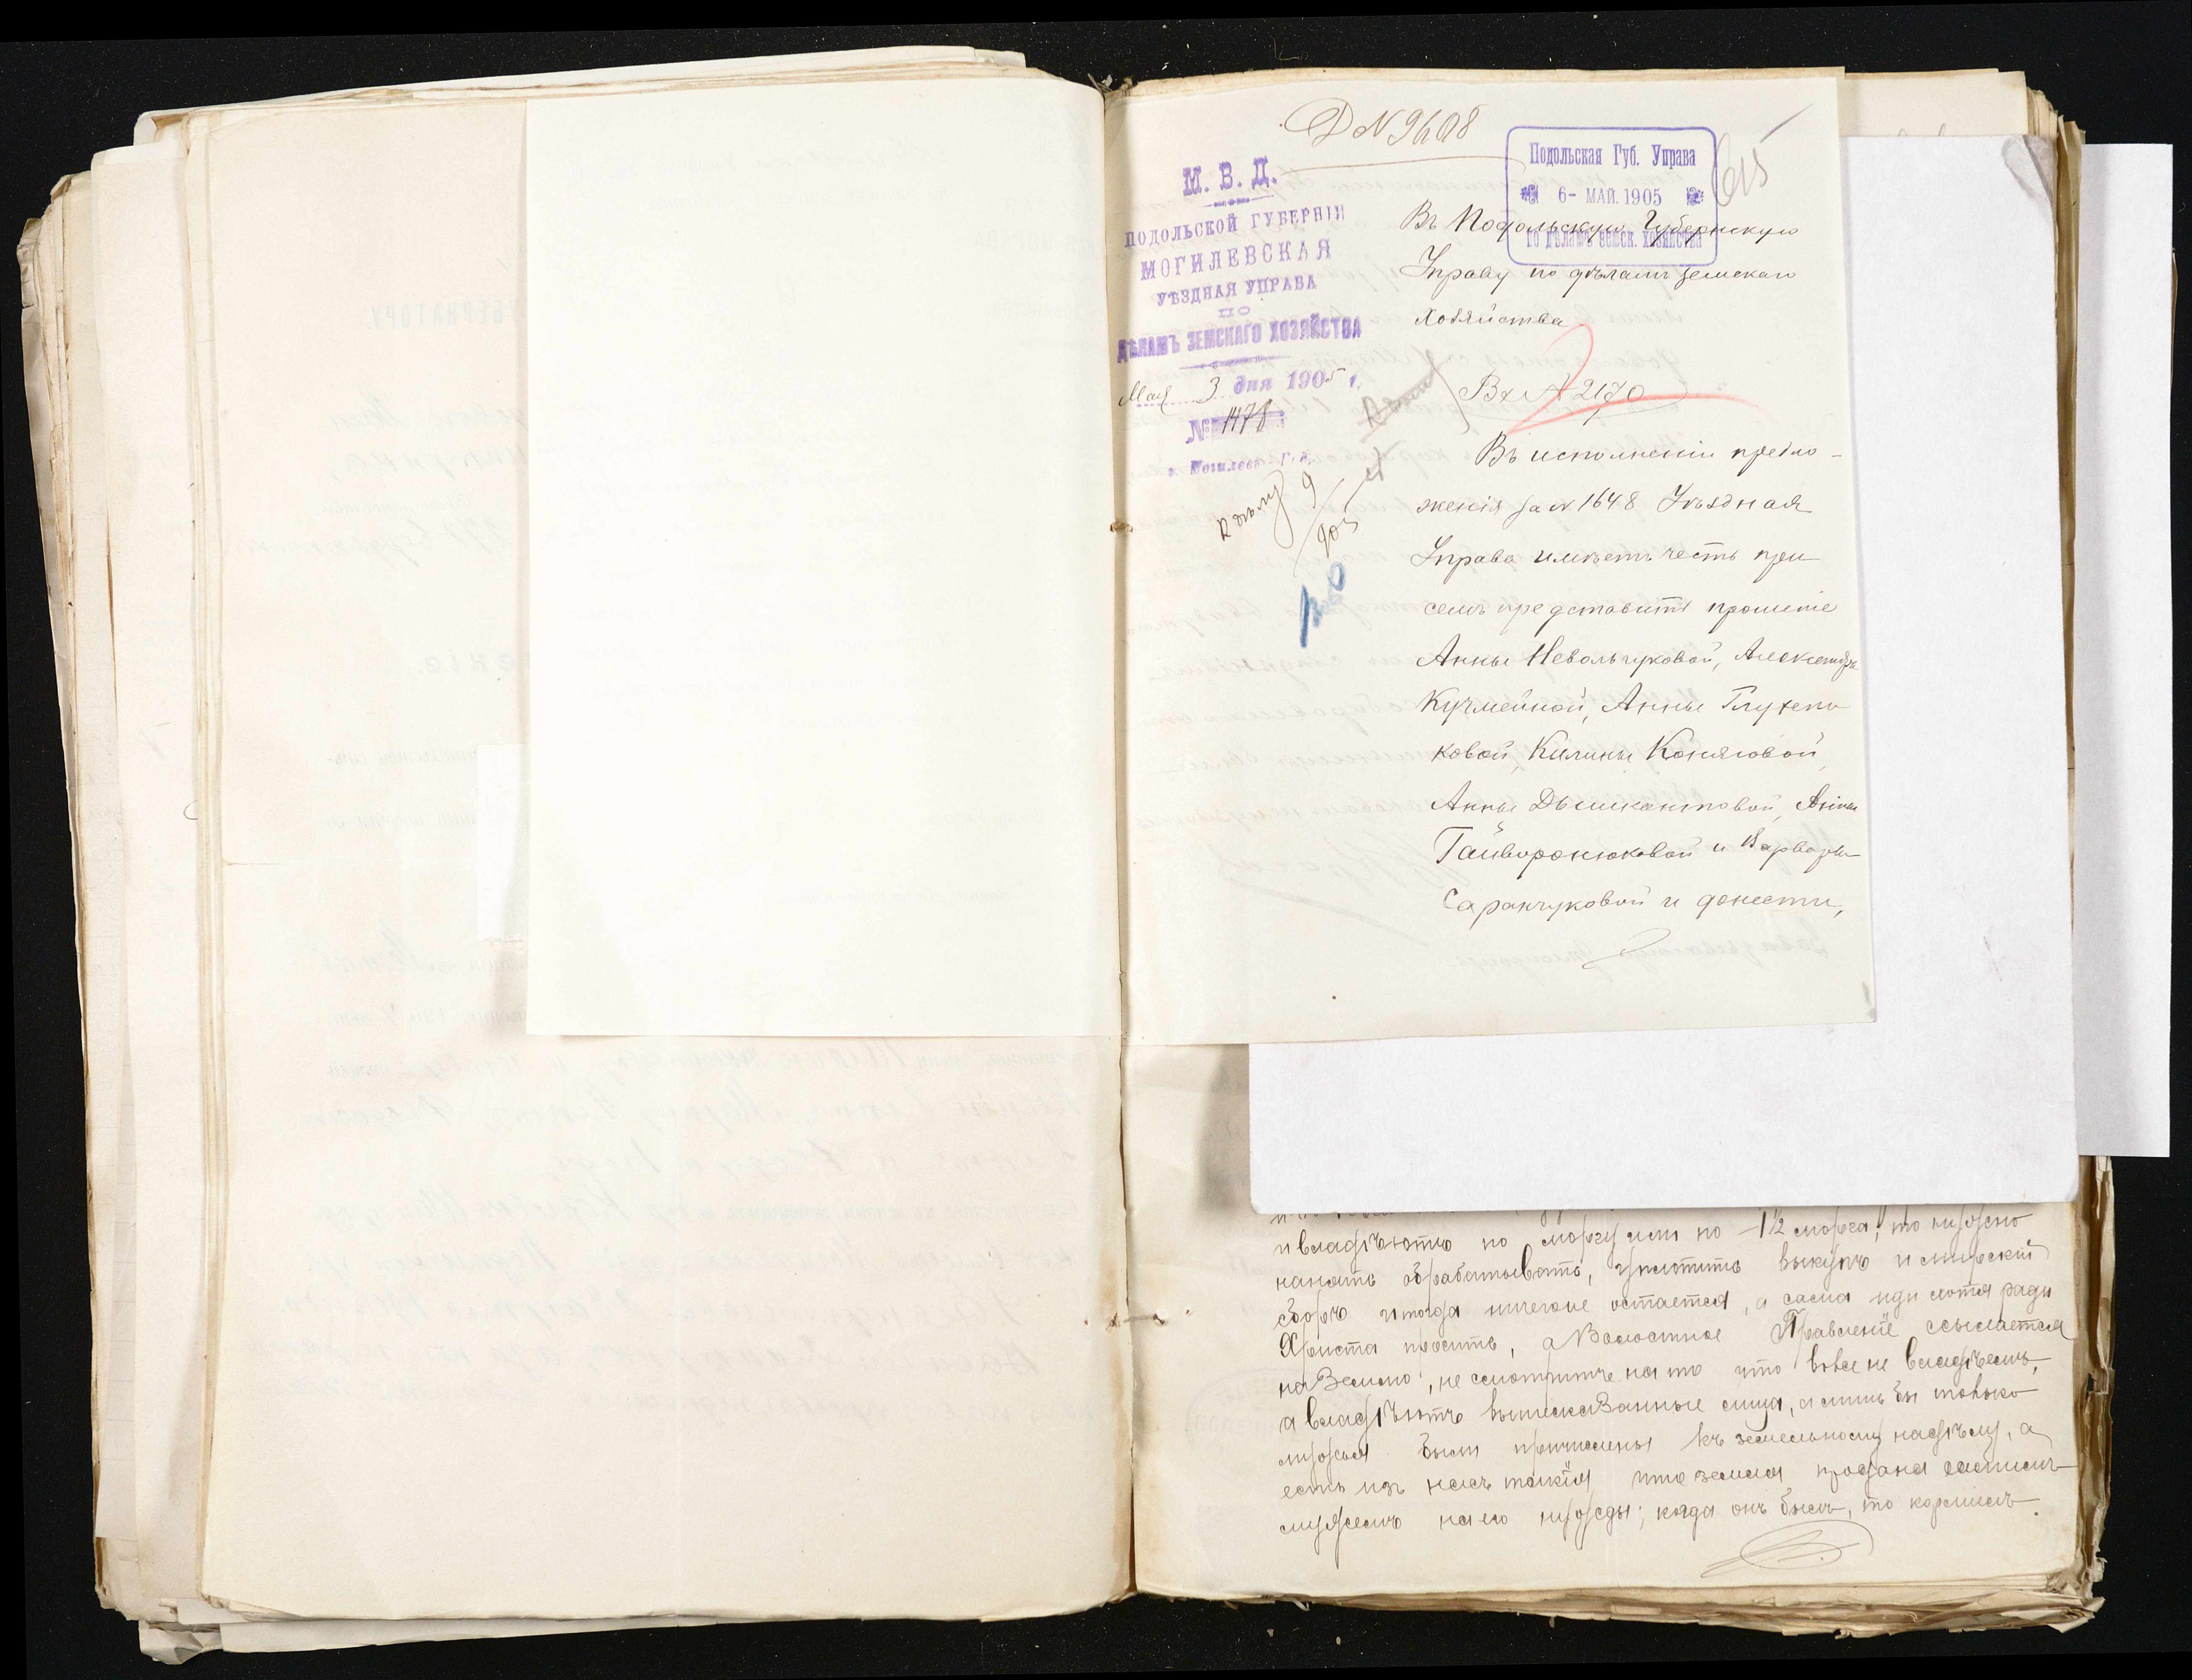 Д N 9608
М. В. Д.
ПОДОЛЬСКОЙ ГУБЕРНІИ
МОГИЛЕВСКАЯ
УѢЗДНАЯ УПРАВА
ПО
ДѢЛАМЪ ЗЕМСКАГО ХОЗЯЙСТВА
Мая 3 дня 1905 г.
№ 1478
г. Могилевъ
Подольская Губ. Управа
6- МАЙ. 1905
по дѣламъ земск. хозяйства
615
Въ Подольскую Губернскую
Управу по дѣламъ земскаго
хозяйства
Вх № 2170
Къ дѣлу
Въ исполненіи предло-
женія за N 1648 Уѣздная
Управа имѣетъ честь при
семъ представить прошеніе
Анны Невольчуковой, Александры
Кучмейной, Анны Глухень
ковой, Килины Коняговой,
Анны Дышкантовой, Анны
Гайворонюковой и Варвары
Саранчуковой и донести,
и владѣютъ по моргу или по 1½ морга, то нужно
нанять обрабатывать, уплотить выкупъ и мирской
сборъ и тогда ничего не остается, а сама иди хотя ради
Христа просить, а Волостное Правленіе ссылается
на Землю, не смотритъ на то что вовсе не владѣемъ,
а владѣютъ вышесказанные лица, а лишь бы только
мужья были причислены къ земельному надѣлу, а
есть изъ насъ такія что земля продана самимъ
мужемъ на его нужды; когда онъ былъ, то кормилъ